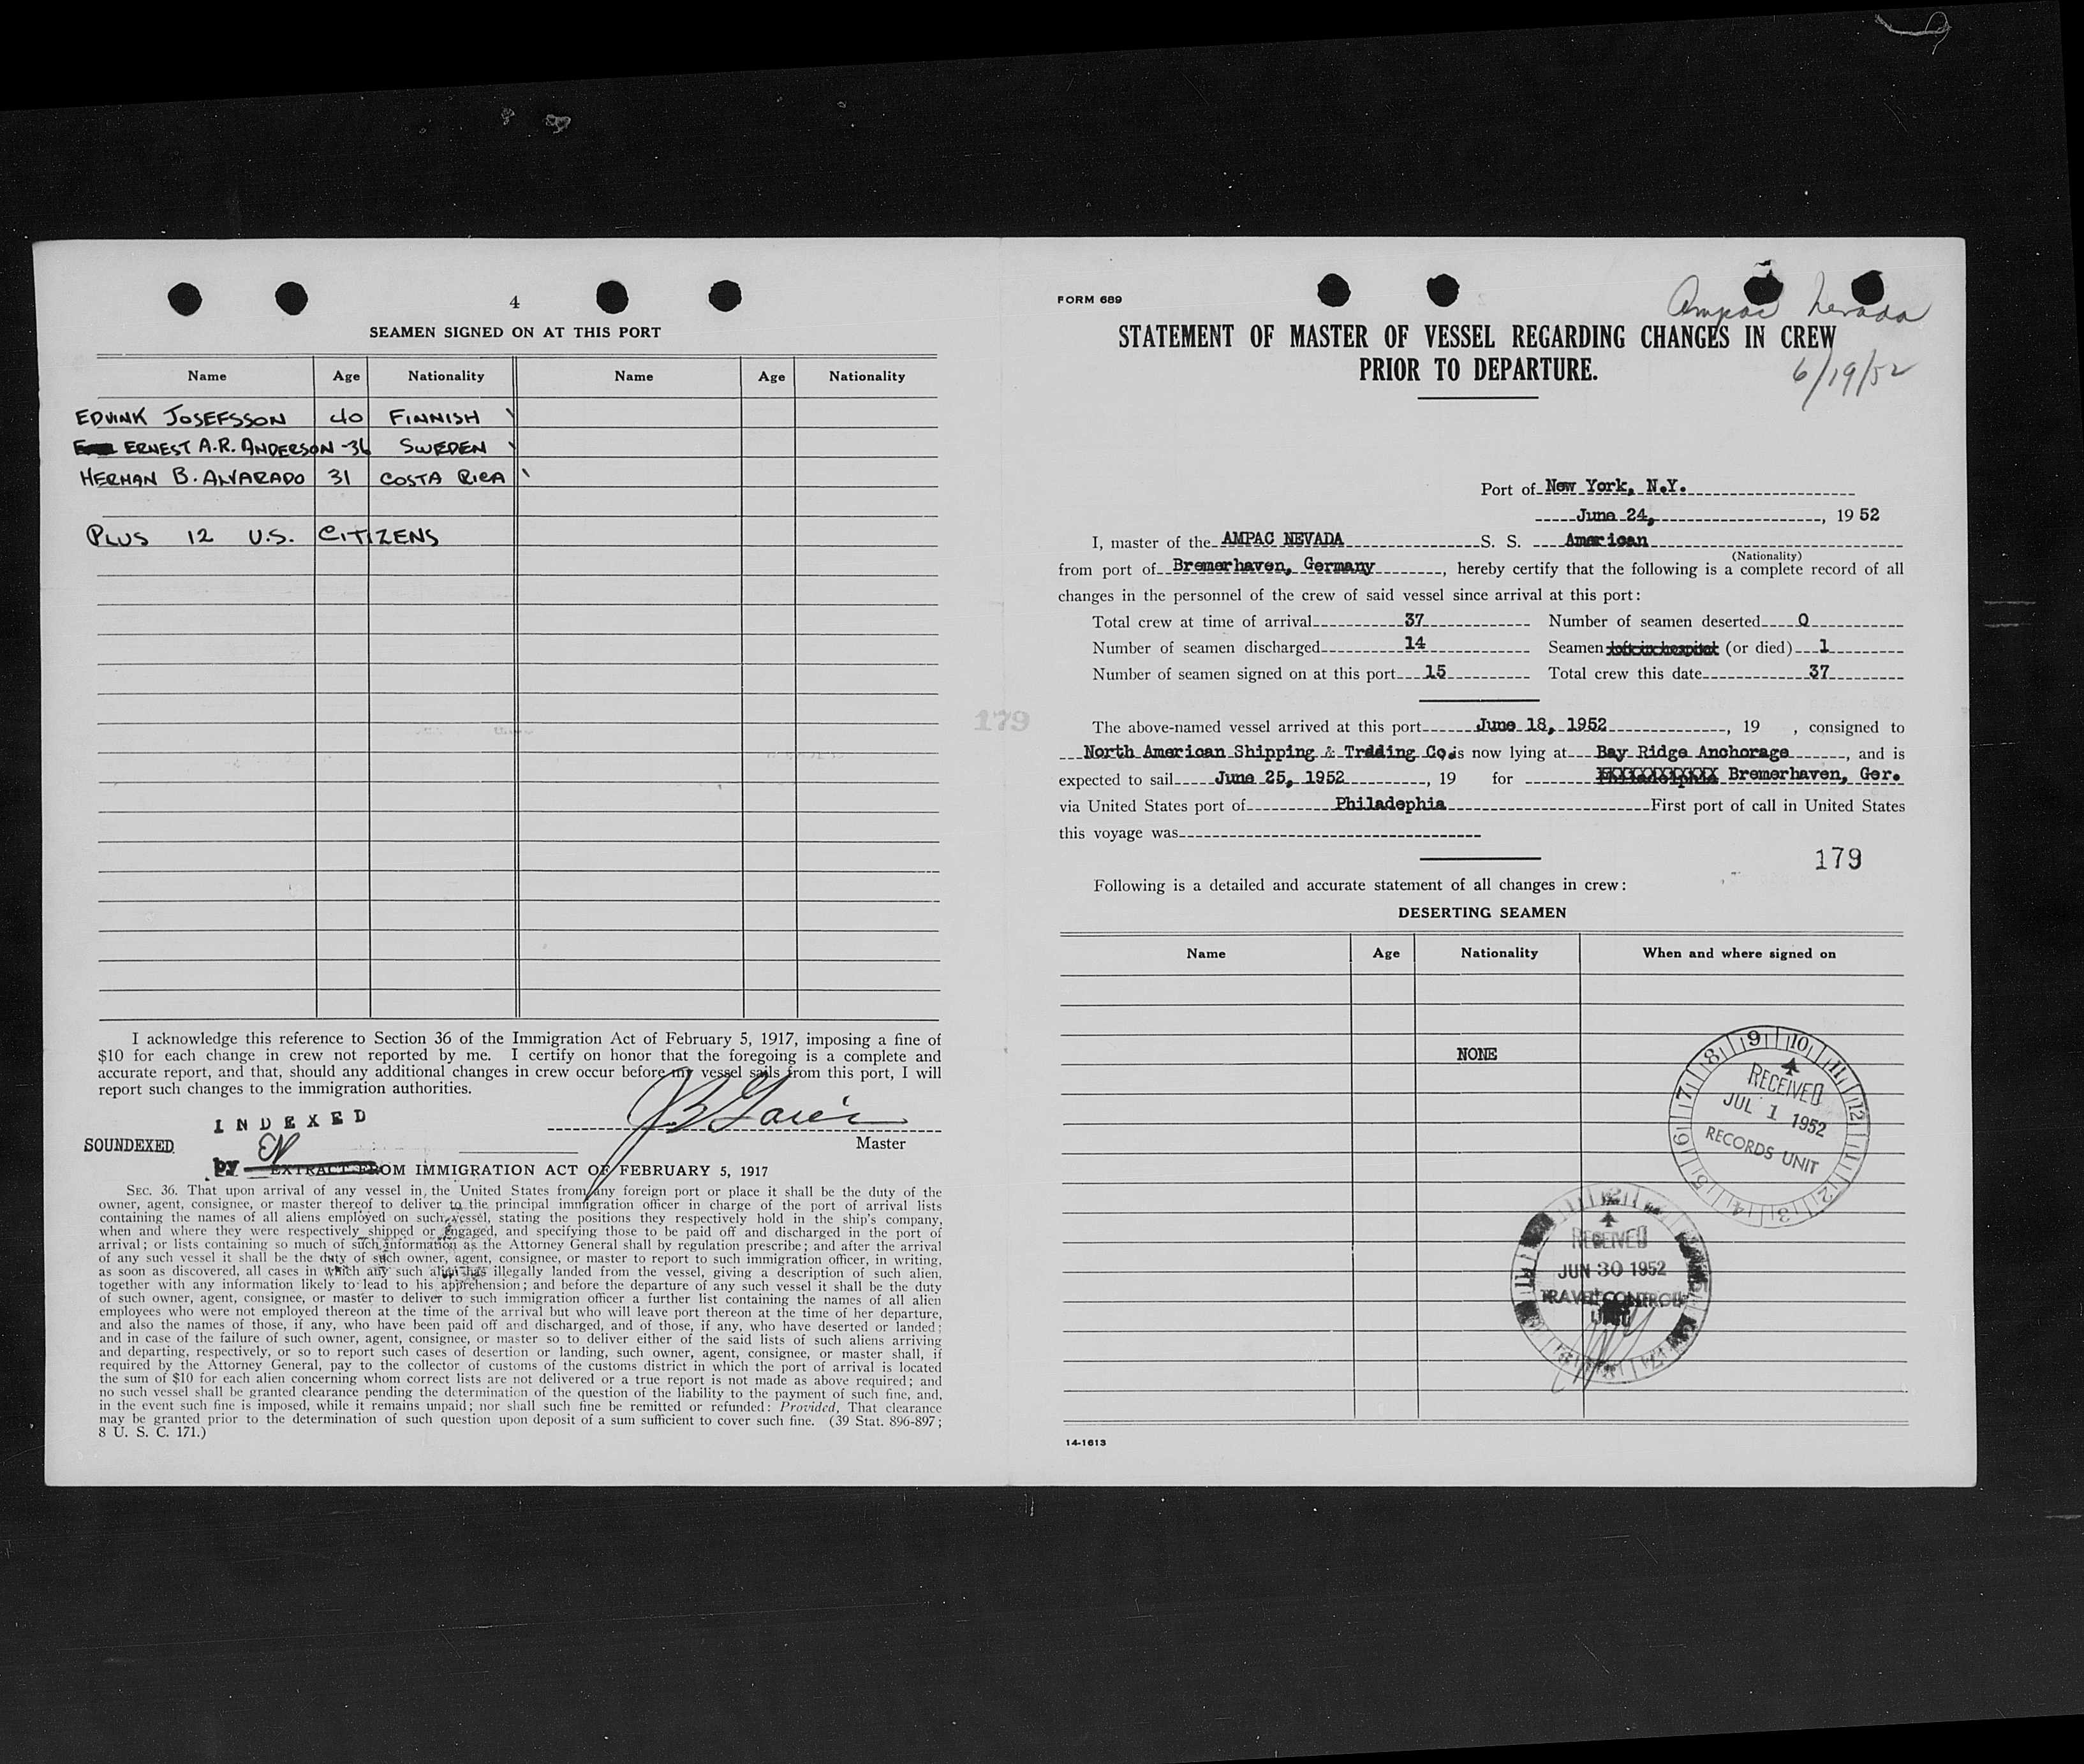 4
SEAMEN SIGNED ON AT THIS PORT
Name Age Nationality Name Age Nationality
EDVINK JOSEFSSON 40 FINNISH
ERNEST A.R. ANDERSON -36 SWEDEN
HERNAN B. ALVARADO 31 COSTA RICA
PLUS 12 U.S. CITIZENS
I acknowledge this reference to Section 36 of the Immigration Act of February 5, 1917, imposing a fine of
$10 for each change in crew not reported by me. I certify on honor that the foregoing is a complete and
accurate report, and that, should any additional changes in crew occur before my vessel sails from this port, I will
report such changes to the immigration authorities.
INDEXED
SOUNDEXED
Master
by EXTRACT FROM IMMIGRATION ACT OF FEBRUARY 5, 1917
SEC. 36. That upon arrival of any vessel in the United States from any foreign port or place it shall be the duty of the
owner, agent, consignee, or master thereof to deliver to the principal immigration officer in charge of the port of arrival lists
containing the names of all aliens employed on such vessel, stating the positions they respectively hold in the ship's company,
when and where they were respectively shipped or engaged, and specifying those to be paid off and discharged in the port of
arrival; or lists containing so much of such information as the Attorney General shall by regulation prescribe; and after the arrival
of any such vessel it shall be the duty of such owner, agent, consignee, or master to report to such immigration officer, in writing,
as soon as discovered, all cases in which any such alien has illegally landed from the vessel, giving a description of such alien,
together with any information likely to lead to his apprehension; and before the departure of any such vessel it shall be the duty
of such owner, agent, consignee, or master to deliver to such immigration officer a further list containing the names of all alien
employees who were not employed thereon at the time of the arrival but who will leave port thereon at the time of her departure,
and also the names of those, if any, who have been paid off and discharged, and of those, if any, who have deserted or landed;
and in case of the failure of such owner, agent, consignee, or master so to deliver either of the said lists of such aliens arriving
and departing, respectively, or so to report such cases of desertion or landing, such owner, agent, consignee, or master shall, if
required by the Attorney General, pay to the collector of customs of the customs district in which the port of arrival is located
the sum of $10 for each alien concerning whom correct lists are not delivered or a true report is not made as above required; and
no such vessel shall be granted clearance pending the determination of the question of the liability to the payment of such fine, and,
in the event such fine is imposed, while it remains unpaid; nor shall such fine be remitted or refunded: Provided, That clearance
may be granted prior to the determination of such question upon deposit of a sum sufficient to cover such fine. (39 Stat. 896-897;
8 U. S. C. 171.)
FORM 689
Ampac Nevada
STATEMENT OF MASTER OF VESSEL REGARDING CHANGES IN CREW
PRIOR TO DEPARTURE.
6/19/52
Port of New York, N.Y.
June 24, , 1952
I, master of the AMPAC NEVADA S. S. American
(Nationality)
from port of Bremerhaven, Germany , hereby certify that the following is a complete record of all
changes in the personnel of the crew of said vessel since arrival at this port:
Total crew at time of arrival 37 Number of seamen deserted 0
Number of seamen discharged 14 Seamen left in hospital (or died) 1
Number of seamen signed on at this port 15 Total crew this date 37
The above-named vessel arrived at this port June 18, 1952 , 19 , consigned to
North American Shipping & Trading Co. is now lying at Bay Ridge Anchorage , and is
expected to sail June 25, 1952 , 19 for Philadelphia Bremerhaven, Ger.
via United States port of Philadephia First port of call in United States
this voyage was
179
179
Following is a detailed and accurate statement of all changes in crew:
DESERTING SEAMEN
Name Age Nationality When and where signed on
NONE
RECEIVED
JUL 1 1952
RECORDS UNIT
RECEIVED
JUN 30 1952
TRAVEL CONTROL
UNIT
14-1613